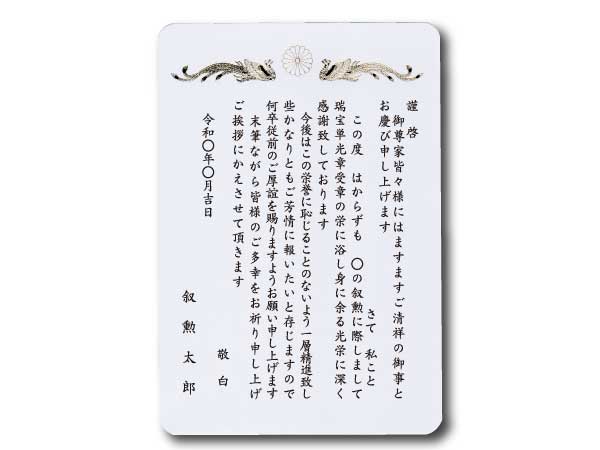 謹啓
御尊家皆々様にはますますご清祥の御事と
お慶び申し上げます
さて 私こと
この度 はからずも 〇の叙勲に際しまして
瑞宝単光章受章の栄に浴し身に余る光栄に深く
感謝致しております
今後はこの栄誉に恥じることのないよう一層精進致し
些かなりともご芳情に報いたいと存じますので
何卒従前のご厚誼を賜りますようお願い申し上げます
末筆ながら皆様のご多幸をお祈り申し上げ
ご挨拶にかえさせて頂きます
敬白
令和〇年〇月吉日
叙勲太郎